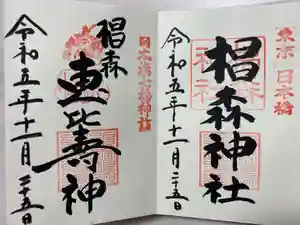 東京 日本橋
椙森神社
令和五年十一月二十五日
日本橋七福神詣
椙森
恵比壽神
令和五年十一月二十五日